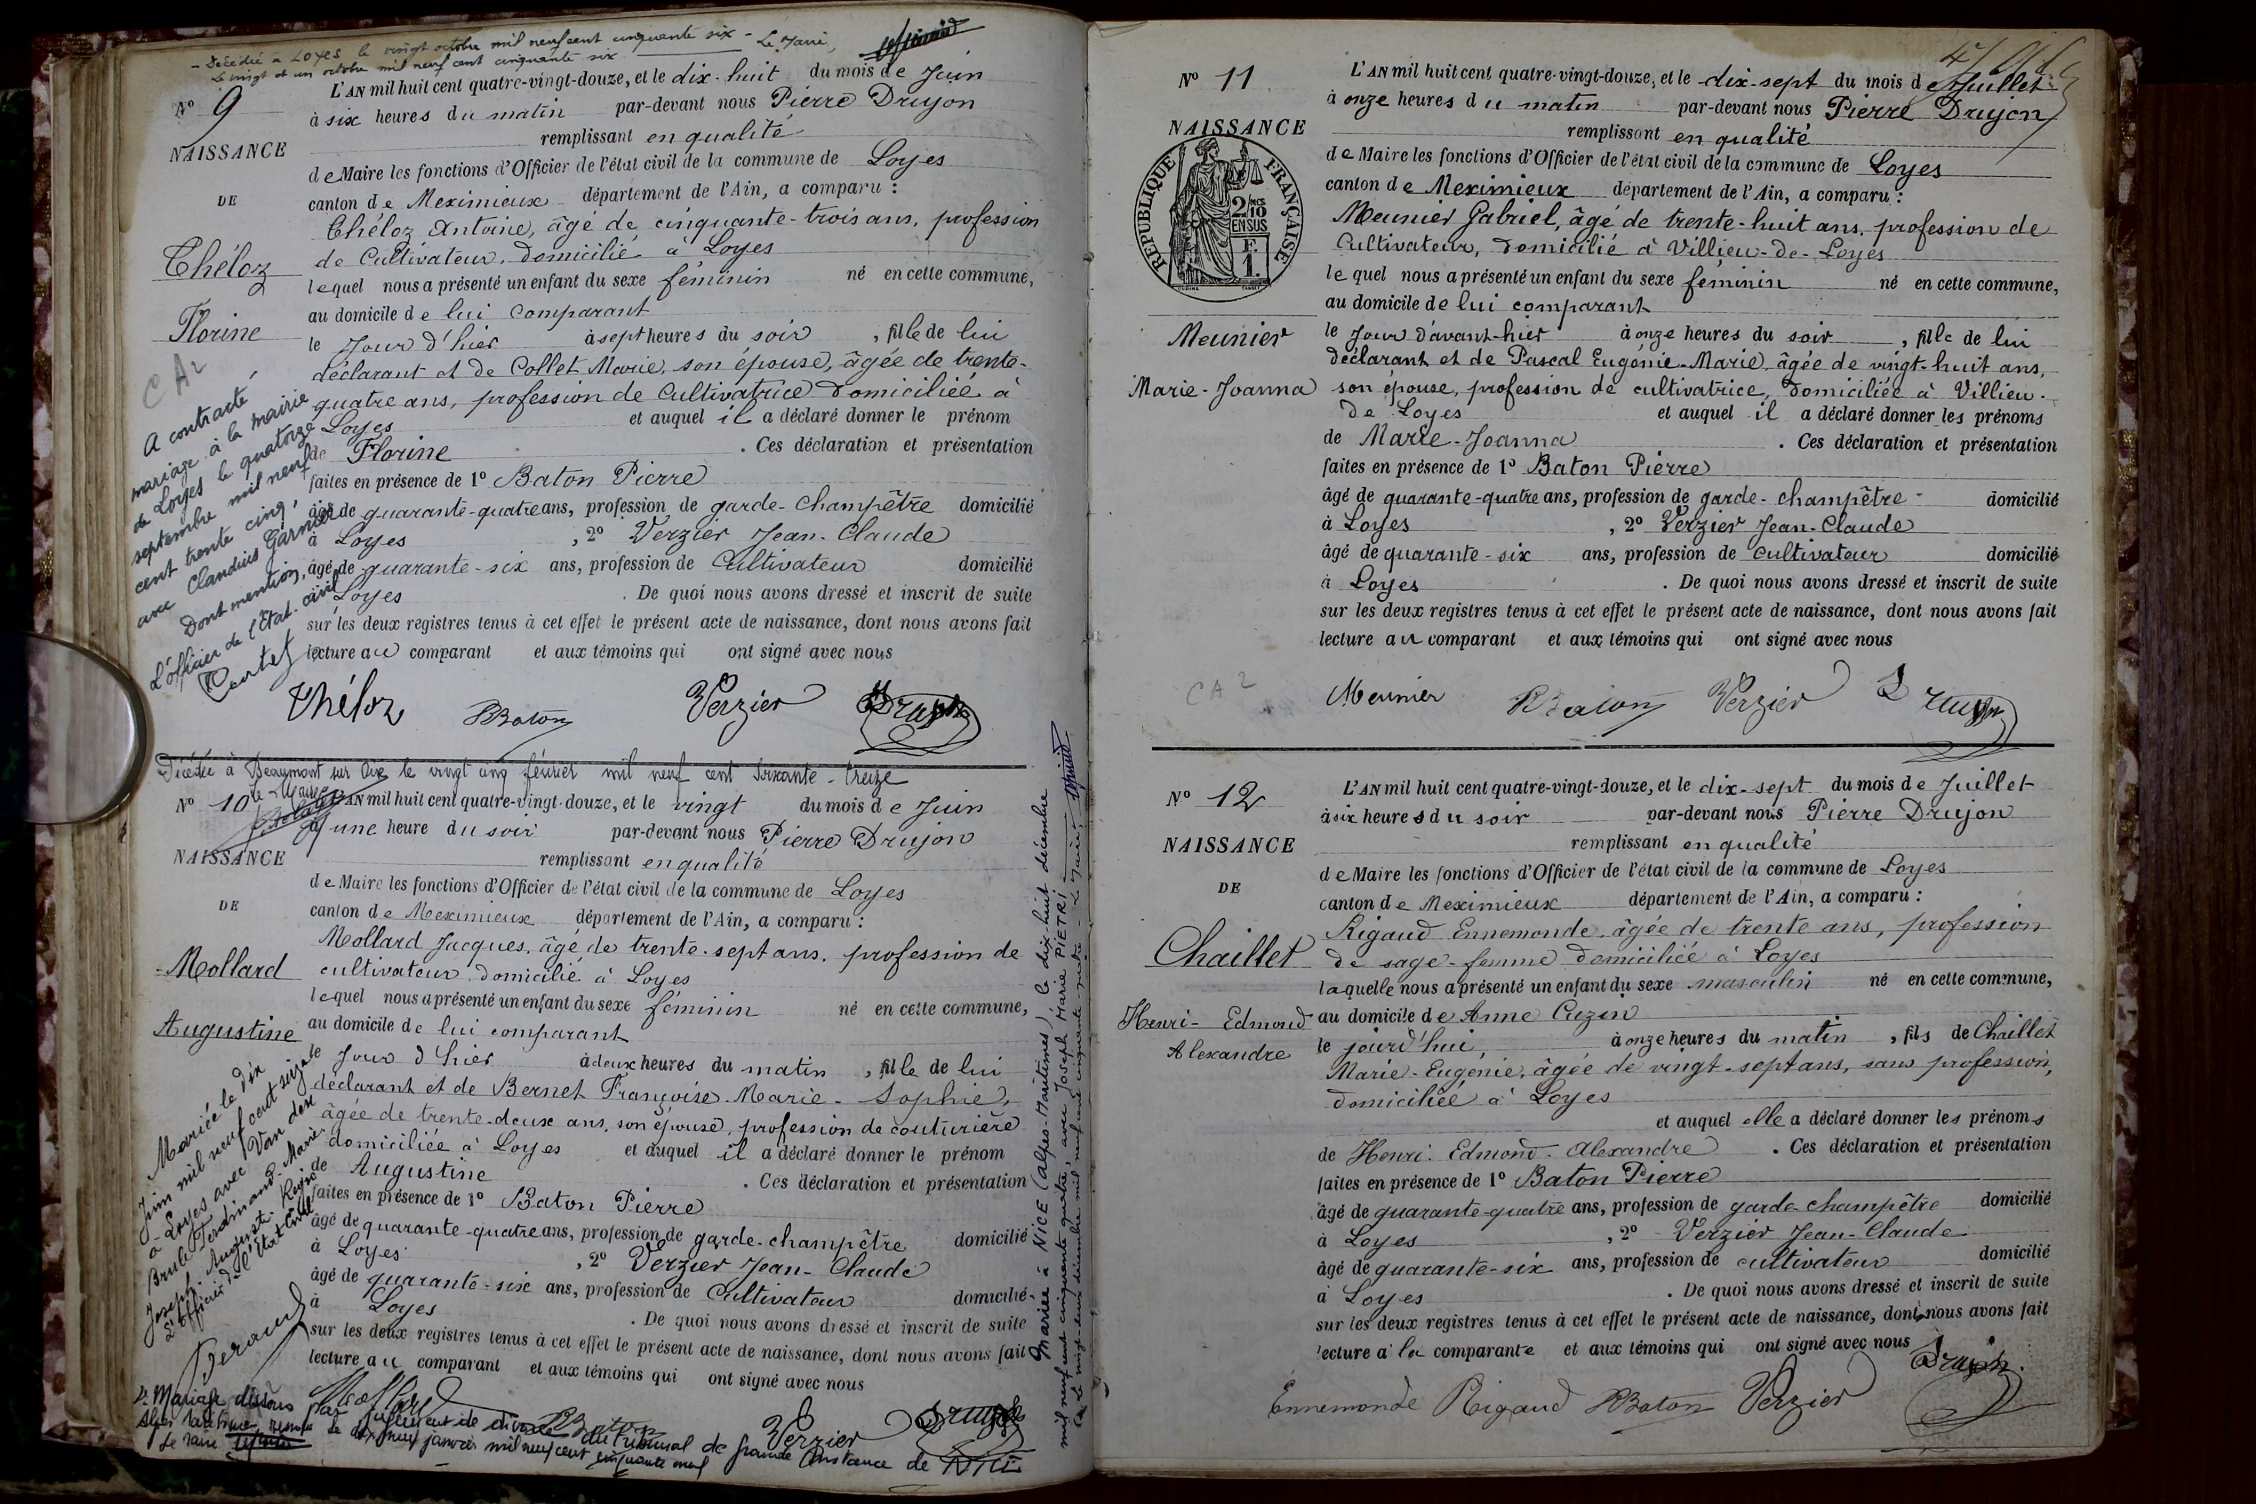 - Décédée à LOYES le vingt octobre mil neuf cent cinquante six - Le Maire,
Le vingt et un octobre mil neuf cent cinquante six
N° 9
NAISSANCE
DE
Théloz
Florine
CA2
A contracté
mariage à la mairie
de Loyes le quatorze
septembre mil neuf
cent trente cinq,
avec Claudius Garnier
Dont mention,
L'officier de l'Etat-civil
L'AN mil huit cent quatre-vingt-douze, et le dix-huit du mois de Juin
à six heures du matin par-devant nous Pierre Drujon
remplissant en qualité
de Maire les fonctions d'Officier de l'état civil de la commune de Loyes
canton de Meximieux département de l'Ain, a comparu :
Théloz Antoine, âgé de cinquante-trois ans, profession
de Cultivateur, domicilié à Loyes
lequel nous a présenté un enfant du sexe féminin né en cette commune,
au domicile de lui comparant
le Jour d'hier à sept heures du soir, fille de lui
déclarant et de Collet Marie, son épouse, âgée de trente-
quatre ans, profession de Cultivatrice domiciliée à
Loyes et auquel il a déclaré donner le prénom
de Florine. Ces déclaration et présentation
faites en présence de 1° Baton Pierre
âgé de quarante-quatre ans, profession de garde-champêtre domicilié
à Loyes, 2° Verzier Jean-Claude
âgé de quarante-six ans, profession de Cultivateur domicilié
Loyes. De quoi nous avons dressé et inscrit de suite
sur les deux registres tenus à cet effet le présent acte de naissance, dont nous avons fait
lecture au comparant et aux témoins qui ont signé avec nous
Théloz Baton Verzier Drujon
Décédée à Beaumont sur Oise le vingt cinq février mil neuf cent soixante-treize
le Maire
N° 10
NAISSANCE
DE
Mollard
Augustine
Mariée le dix
Juin mil neuf cent seize
à Loyes avec Van den
Brule Ferdinand-Marie-
Joseph-August.
L'officier de l'Etat Civil
L'AN mil huit cent quatre-vingt-douze, et le vingt du mois de Juin
à une heure du soir par-devant nous Pierre Drujon
remplissant en qualité
de Maire les fonctions d'Officier de l'état civil de la commune de Loyes
canton de Meximieux département de l'Ain, a comparu :
Mollard Jacques, âgé de trente-sept ans, profession de
cultivateur domicilié à Loyes
lequel nous a présenté un enfant du sexe féminin né en cette commune,
au domicile de lui comparant
le Jour d'hier à deux heures du matin, fille de lui
déclarant et de Bernet Françoise-Marie-Sophie,
âgée de trente-deux ans, son épouse, profession de couturière
domiciliée à Loyes et auquel il a déclaré donner le prénom
de Augustine. Ces déclaration et présentation
faites en présence de 1° Baton Pierre
âgé de quarante-quatre ans, profession de garde-champêtre domicilié
à Loyes, 2° Verzier Jean-Claude
âgé de quarante-six ans, profession de Cultivateur domicilié
à Loyes. De quoi nous avons dressé et inscrit de suite
sur les deux registres tenus à cet effet le présent acte de naissance, dont nous avons fait
lecture au comparant et aux témoins qui ont signé avec nous
Mollard Baton Verzier Drujon
Mariage dissous par jugement de divorce du Tribunal de Grande Instance de Nice
le dix neuf janvier mil neuf cent cinquante neuf
Le Maire
Mariée à NICE (Alpes-Maritimes) le dix-huit décembre
mil neuf cent cinquante quatre, avec Joseph Marie PIETRI
Le vingt-deux décembre mil neuf cent cinquante quatre - Le Maire,
N° 11
NAISSANCE
RÉPUBLIQUE FRANÇAISE
2/10 EN SUS
F. 1.
Meunier
Marie-Joanna
L'AN mil huit cent quatre-vingt-douze, et le dix-sept du mois de Juillet
à onze heures du matin par-devant nous Pierre Drujon
remplissant en qualité
de Maire les fonctions d'Officier de l'état civil de la commune de Loyes
canton de Meximieux département de l'Ain, a comparu :
Meunier Gabriel, âgé de trente-huit ans, profession de
Cultivateur, domicilié à Villieu-de-Loyes
lequel nous a présenté un enfant du sexe féminin né en cette commune,
au domicile de lui comparant
le Jour d'avant-hier à onze heures du soir, fille de lui
déclarant et de Pascal Eugénie-Marie, âgée de vingt-huit ans,
son épouse, profession de cultivatrice, domiciliée à Villieu-
de Loyes et auquel il a déclaré donner les prénoms
de Marie-Joanna. Ces déclaration et présentation
faites en présence de 1° Baton Pierre
âgé de quarante-quatre ans, profession de garde-champêtre domicilié
à Loyes, 2° Verzier Jean-Claude
âgé de quarante-six ans, profession de cultivateur domicilié
à Loyes. De quoi nous avons dressé et inscrit de suite
sur les deux registres tenus à cet effet le présent acte de naissance, dont nous avons fait
lecture au comparant et aux témoins qui ont signé avec nous
CA2
Meunier Baton Verzier Drujon
N° 12
NAISSANCE
DE
Chaillet
Henri-Edmond
Alexandre
L'AN mil huit cent quatre-vingt-douze, et le dix-sept du mois de Juillet
à six heures du soir par-devant nous Pierre Drujon
remplissant en qualité
de Maire les fonctions d'Officier de l'état civil de la commune de Loyes
canton de Meximieux département de l'Ain, a comparu :
Rigaud Ennemonde, âgée de trente ans, profession
de sage-femme domiciliée à Loyes
laquelle nous a présenté un enfant du sexe masculin né en cette commune,
au domicile de Anne Cuzin
le jourd'hui, à onze heures du matin, fils de Chaillet
Marie-Eugénie, âgée de vingt-sept ans, sans profession,
domiciliée à Loyes
et auquel elle a déclaré donner les prénoms
de Henri-Edmond-Alexandre. Ces déclaration et présentation
faites en présence de 1° Baton Pierre
âgé de quarante-quatre ans, profession de garde-champêtre domicilié
à Loyes, 2° Verzier Jean-Claude
âgé de quarante-six ans, profession de cultivateur domicilié
à Loyes. De quoi nous avons dressé et inscrit de suite
sur les deux registres tenus à cet effet le présent acte de naissance, dont nous avons fait
lecture à la comparante et aux témoins qui ont signé avec nous
Ennemonde Rigaud Baton Verzier Drujon